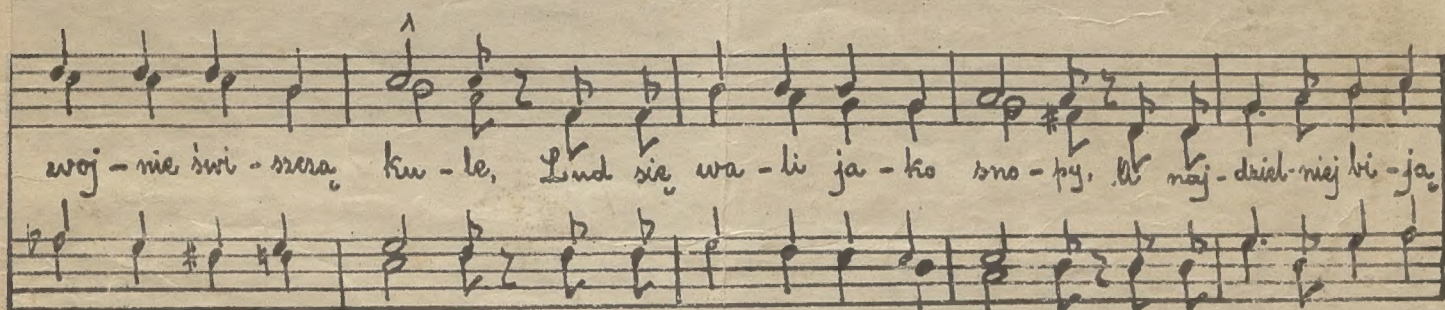 woj - nie świ - szczą ku - le, Lud się wa - li ja - ko sno - py, A naj - dziel - niej bi - ją